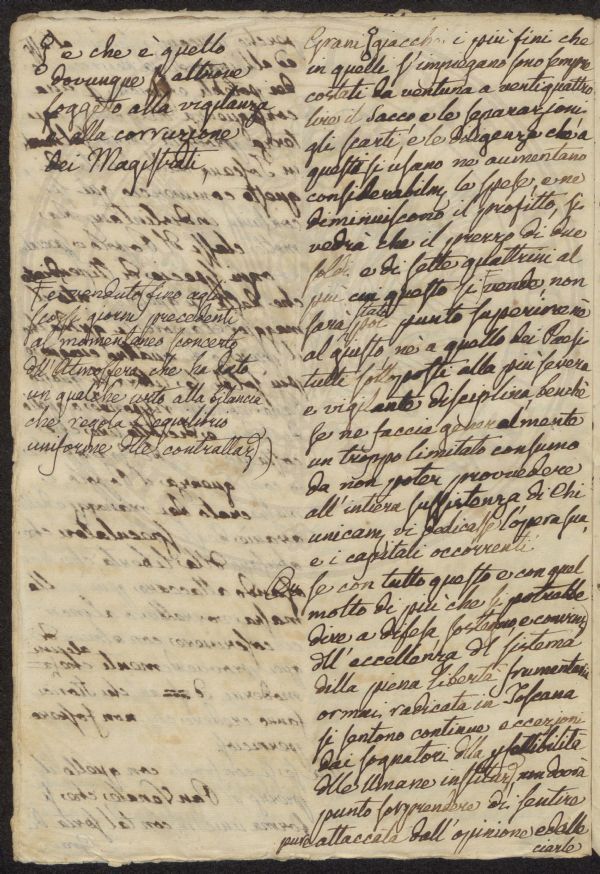 e che è quello
dovunque, e altrove
soggetto alla vigilanza
e alla correzione
dei Magistrati,
e venduto fino agli
scorsi giorni precedenti
al momentaneo sconcerto
dell'Atmosfera che ha dato
un qualche urto alla bilancia
che regola l'equilibrio
uniforme delle contrattaz.)
Grani giacchè i più fini che
in quelli s'impiegano sono sempre
costati da ventuna a ventiquattro
lire il Sacco, e le separazioni
gli scarti, e le diligenze che a
questo si usano ne aumentano
considerabilm. la spese, e ne
diminuiscono il profitto, si
vedrà che il prezzo di due
soldi, e di sette quattrini al
più cui questo si vende non
sarà stato poi punto superiore
al giusto nè a quello dei Paesi
tutti sottoposti alla più severa
e vigilante disciplina, benchè
se ne faccia generalmente
un troppo limitato consumo
da non poter provvedere
all'intiera sussistenza di chi
unicam. vi dedicasse l'opera sua,
e i capitali occorrenti.
Se con tutto questo e con quel
molto di più che si potrebbe
dire a difesa, sostegno, e
dell'eccellenza del sistema
della piena libertà frumentaria
ormai radicata in Toscana
si sentono continue eccezioni
dai sognatori della
delle Umane non dovrà
punto sorprendere di sentire
pure attaccata dall'opinione e dalle
ciarle